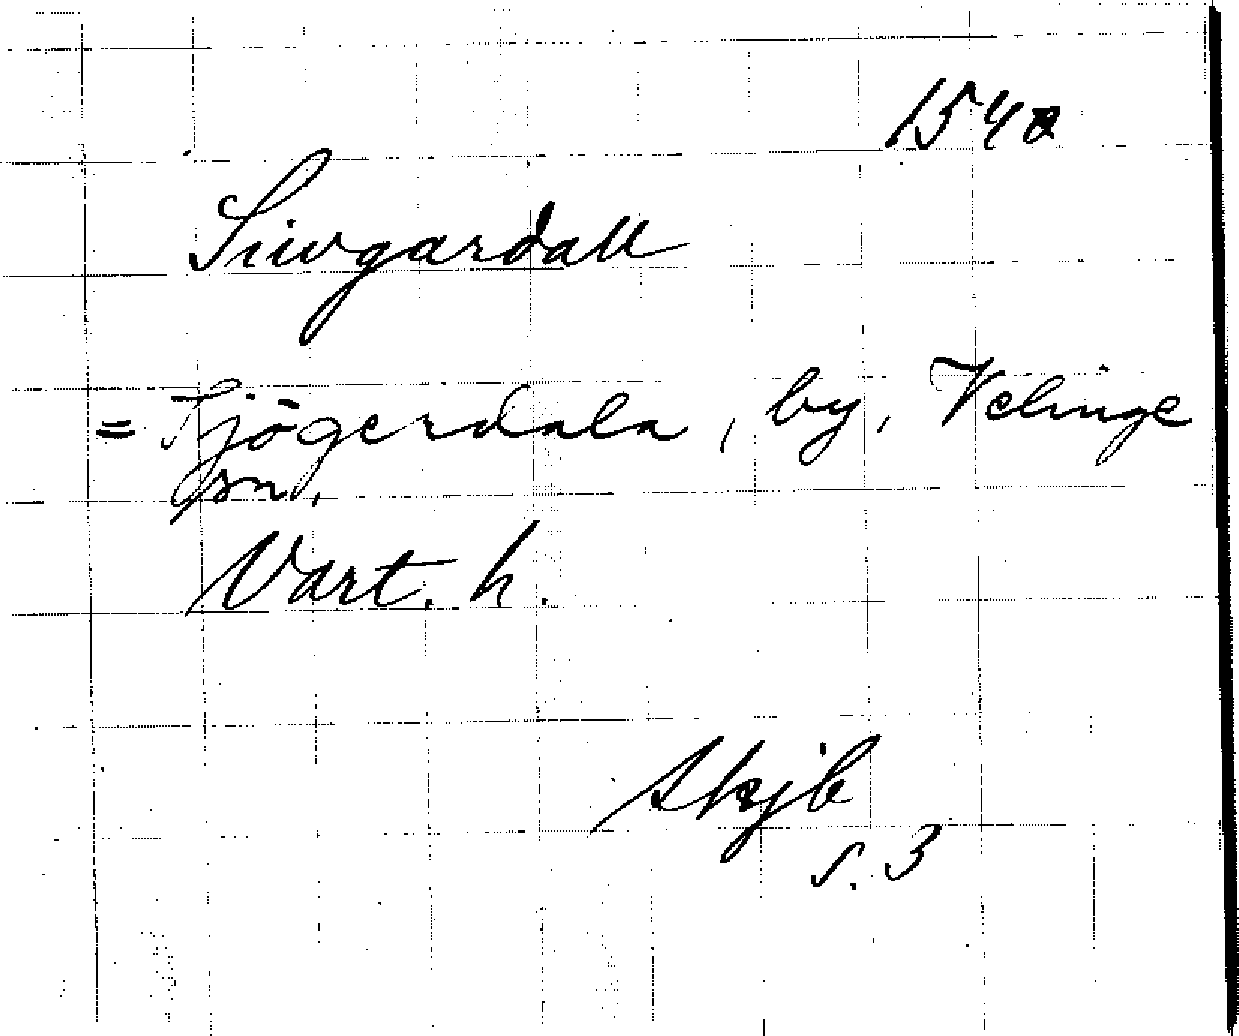 1542
Siwgardall
= Sjögerdala, by, Velinge
sn.
Vart. h.
Skjb
s. 3